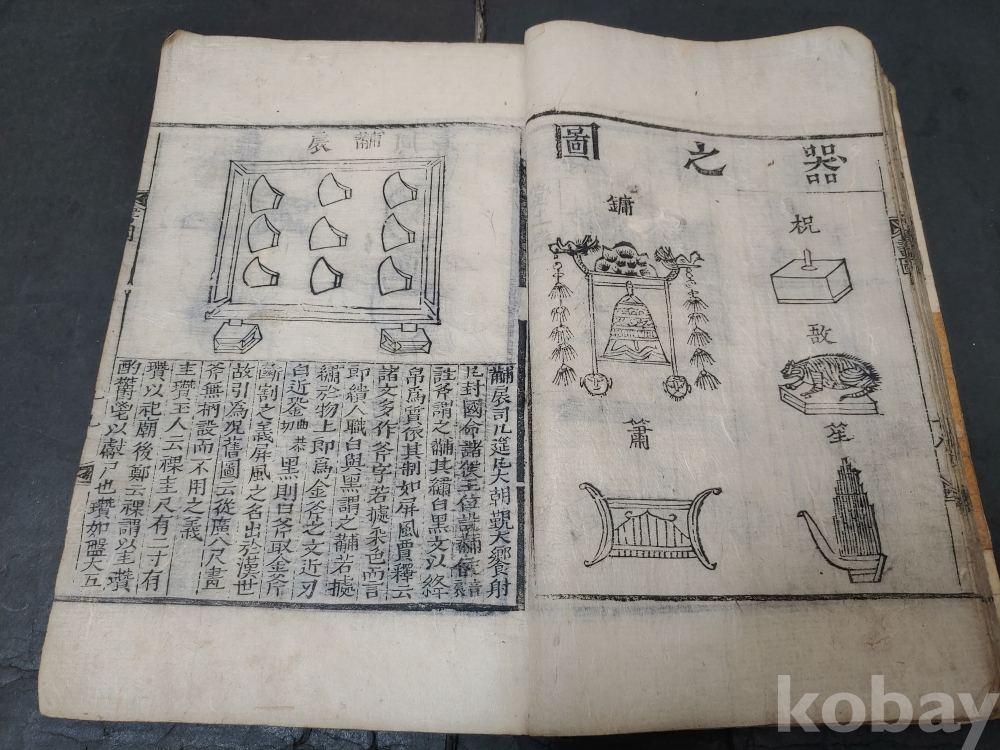 器之圖
柷
敔
笙
鏞
簫
黼扆
黼扆司几筵凡大朝覲大饗射
凡封國命諸侯王位設黼依
註斧謂之黼其繡白黑文以絳
帛爲質依其制如屏風賈釋云
諸文多作斧字若據采色而言
即繢人職白與黑謂之黼若據
繡於物上即爲金斧之文近刃
白近銎曲恭切黑則曰斧取金斧
斷割之義屏風之名出於漢世
故引爲況舊圖云從廣八尺畫
斧無柄設而不用之義
圭瓚玉人云祼圭尺有二寸有
瓚以祀廟後鄭云祼謂以圭瓚
酌鬱鬯以獻尸也瓚如盤大五
kobay